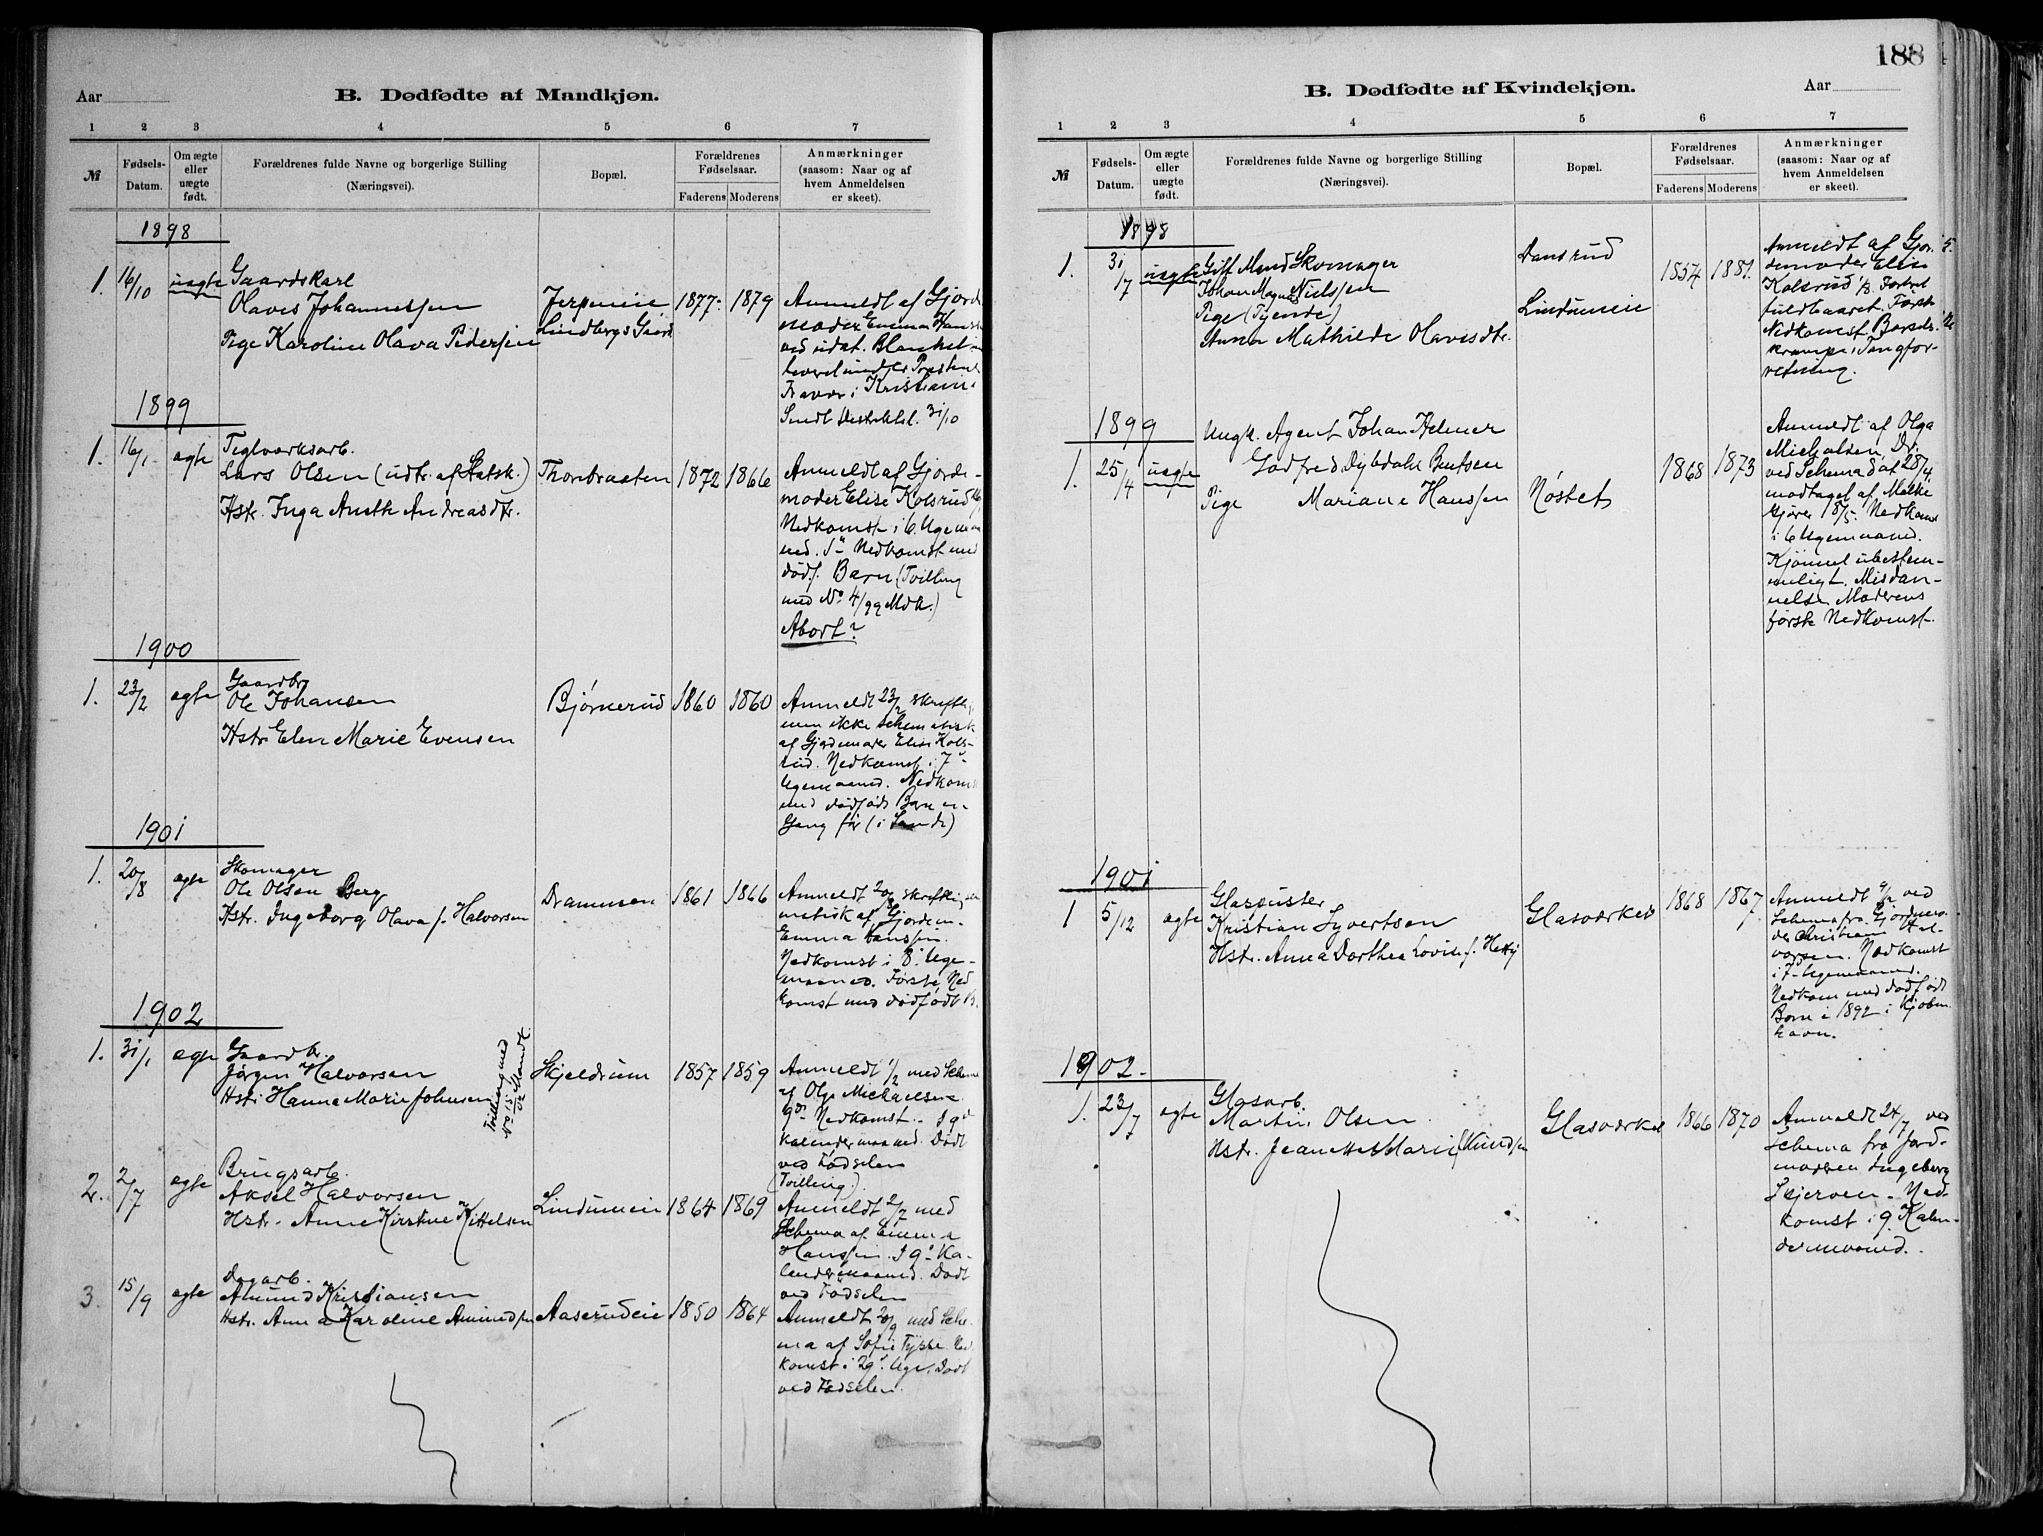 Aar
B. Dødfødte af Mandkjøn.
1 2 3 4 5 6 7
№
Fødsels-
Datum.
Om ægte
eller
uægte
født.
Forældrenes fulde Navne og borgerlige Stilling
(Næringsvei).
Bopæl.
Forældrenes
Fødselsaar.
Faderens Moderens
Anmærkninger
(saasom: Naar og af
hvem Anmeldelsen
er skeet).
1898
1. 16/10 uægte Gaardskarl
Olaves Johannessen
Pige Karoline Olava Pedersen
Lindbergs
1877 1879
Anmeldt af Gjorde-
moder Emma Hans
ved udat. Blanket
1899
1. 16/1 ægte Teglværksarb.
Lars Olsen (udtr. af Statsk.)
Hstr. Inga Andreasdtr.
Thonbraaten
1872 1866
Anmeldt af Gjorde-
moder Elise Kolsrud
Nedkomst i 6. Ugemaa
ned. Nedkomst med
dødf. Barn (Tvilling
med No 4/99 Mdk.)
Abort?
1900
1. 23/2 ægte Gaardbr.
Ole Johansen
Hstr. Elen Marie Evensen
Bjørnerud
1860 1860
Anmeldt 23/2 skriftlig
men ikke schematisk
af Elise Kols-
rud. Nedkomst i 7
Ugemaaned. Nedkomst
med dødfødt Barn en
Gang før (i Sande)
1901
1. 20/8 ægte Skomager
Ole Olsen Berg
Hstr. Ingeborg Olava f. Halvorsen
Drammen
1861 1866
Anmeldt 20/8 skriftlig
af Gjordem.
Emma Hanssen.
Nedkomst i 8. Uge-
maaned. Første Ned
komst med dødfødt B.
1902
1. 31/1 ægte Gaardbr.
Jørgen Halvorsen
Hstr. Hanna Marie Johnsen
Tvilling med
No 15 Mandk.
Skjeldrum
1857 1859
Anmeldt 1/2 med Schema
af Olga Michaelsen
9de Nedkomst. I 9de
Kalendermaaned. Dødt
ved Fødselen
(Tvilling).
2. 2/7 ægte Brugsarb.
Aksel Halvorsen
Hstr. Anne Kirstine Kittelsen
Lindumeie
1864 1869
Anmeldt 2/7 med
Schema af Emma
Hanssen. I 9de Ka-
lendermaaned. Dødt
ved Fødselen
3. 15/9 ægte Dagarb.
Amund Kristiansen
Hstr. Anna Karoline
Aaserudeie
1850 1864
Anmeldt 20/9 med Sche-
ma af Sofie Ned
komst i 29de Uge. Dødt
ved Fødselen.
188
B. Dødfødte af Kvindekjøn.
Aar
1 2 3 4 5 6 7
№
Fødsels-
Datum.
Om ægte
eller
uægte
født.
Forældrenes fulde Navne og borgerlige Stilling
(Næringsvei).
Bopæl.
Forældrenes
Fødselsaar.
Faderens Moderens
Anmærkninger
(saasom: Naar og af
hvem Anmeldelsen
er skeet).
1898
1. 31/7 uægte Gift Mand Skomager
Johan Magnus Nielssen
Pige (Tjende)
Anna Mathilde Olavesdtr.
Dansrud
Lindumeie
1857 1881.
Anmeldt af Gjor-
demoder Elise
Kolsrud
fuldbaaret. Første
Nedkomst. Barsels-
krampe, Tangfor-
retning.
1899
Ungk. Agent Johan Helmer
1. 25/4 uægte Godfred Dybdahl Bentsen
Pige Mariane Hanssen
Nøstet
1868 1873
Anmeldt af Olga
Michaelsen, Dr.
ved Schema af 28/4
modtaget af
18/5. Nedkomst
i 6 Ugemaaned.
Kjønnet ubestem-
meligt. Misdan-
nelse. Moderens
første Nedkomst.
1901
1 5/12 ægte Glaspuster
Kristian Syvertsen
Hstr. Anna Dorthea Lovise f.
Glasværket
1868 1867
Anmeldt ved
Schema fra Gjordmo-
der Christiane Hal-
vorsen. Nedkomst
i 7. Ugemaaned.
Nedkom med dødfødt
Barn i 1892 i Kjøben
havn.
1902.
1. 23/7 ægte Glasarb.
Martin Olsen
Hstr. Jeanette Marie Knudsen
Glasværket
1866 1870
Anmeldt 24/7 ved
Schema fra Jord-
moderen Ingeborg
Skjerven. Ned-
komst i 9. Kalen-
dermaaned.